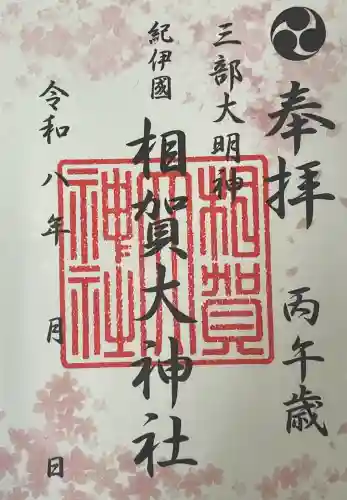 奉拝
丙午歳
三部大明神
紀伊國
相賀大神社
令和八年 月 日
相賀
大
神社